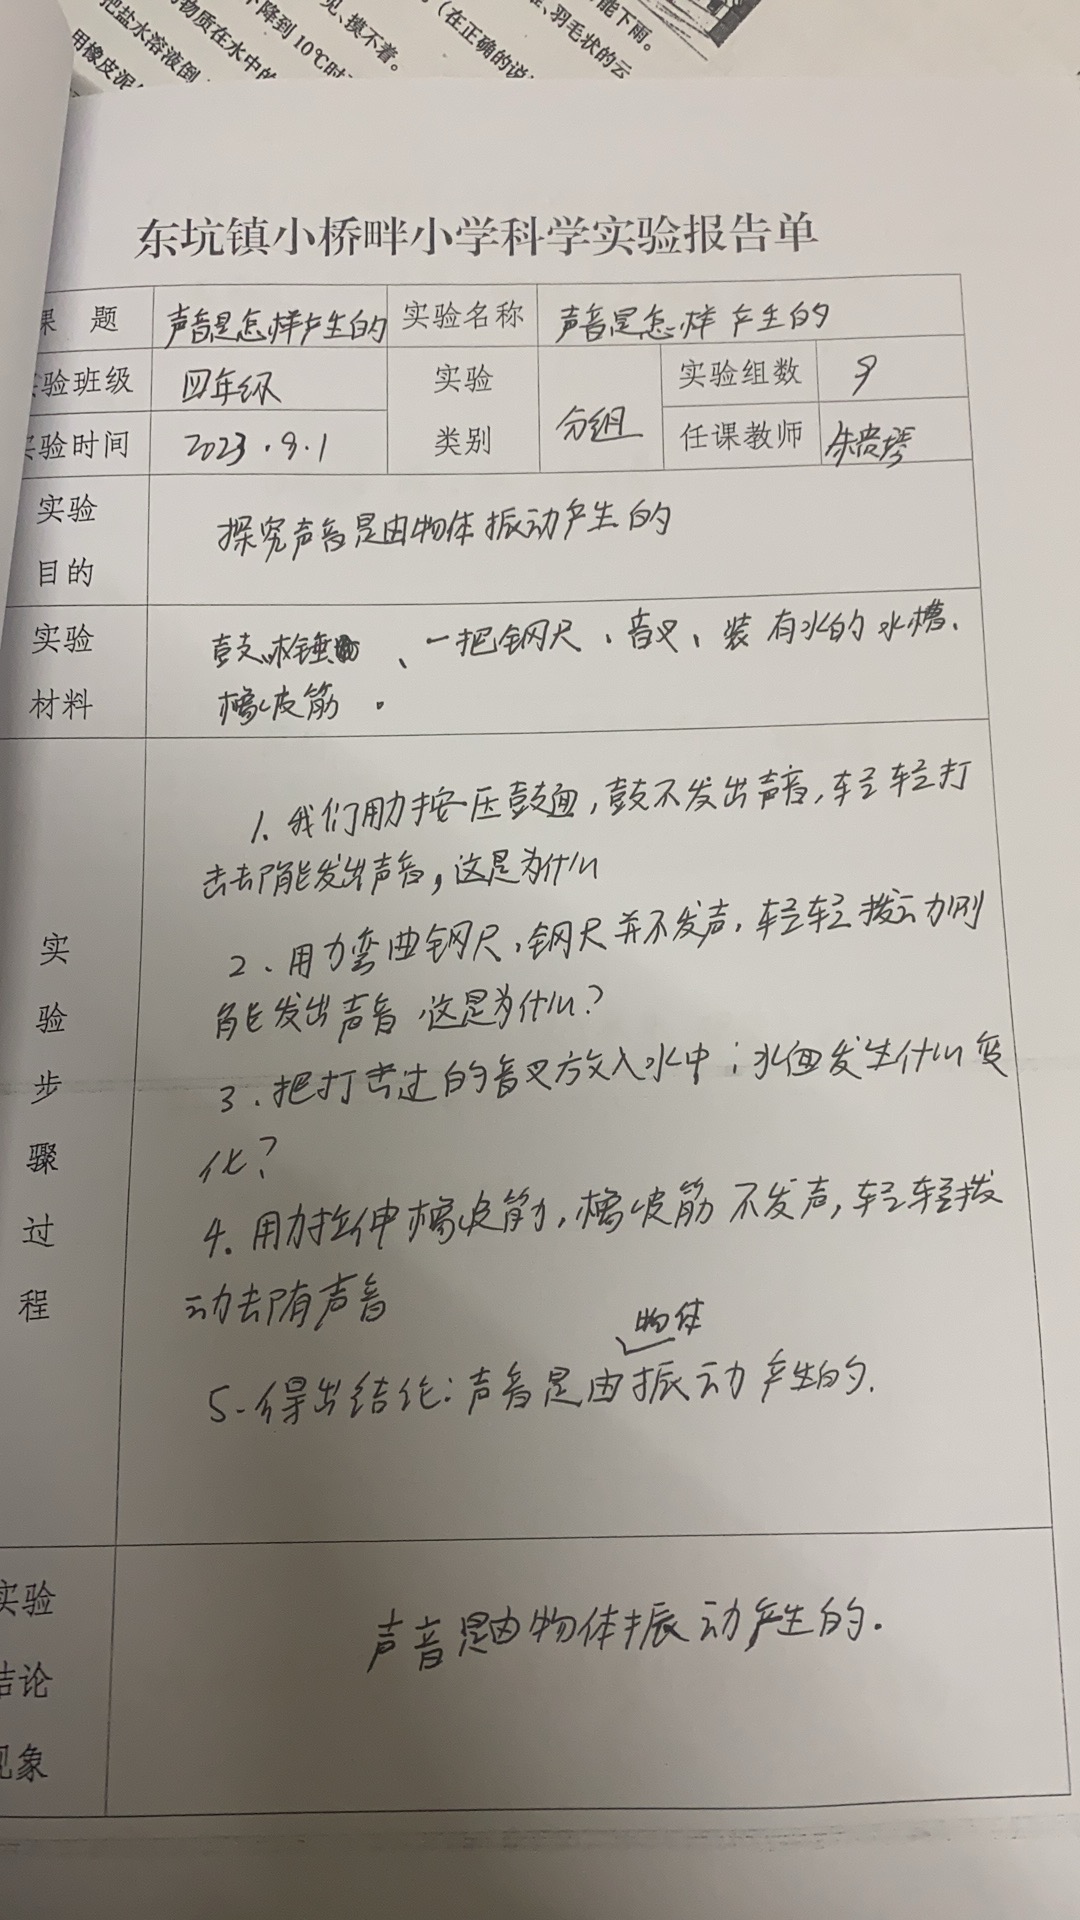 见、摸不着。
能下雨。
降到10℃时
(在正确的说
羽毛状的云
物质在水中的
把盐水溶液倒
用橡皮泥
东坑镇小桥畔小学科学实验报告单
课 题 声音是怎样产生的 实验名称 声音是怎样产生的
实验班级 四年级 实验 类别 分组 实验组数 9
实验时间 2023.9.1 任课教师
实验
目的
探究声音是由物体振动产生的
实验
材料
鼓、一把钢尺、音叉、装有水的水槽、
橡皮筋。
实
验
步
骤
过
程
1、我们用力按压鼓面,鼓不发出声音,轻轻打
击却能发出声音,这是为什么
2、用力弯曲钢尺,钢尺并不发声,轻轻拨动则
能发出声音,这是为什么?
3.把打击过的音叉放入水中;水面发生什么变
化?
4.用力拉伸橡皮筋,橡皮筋不发声,轻轻拨
动却有声音
物体
5-得出结论:声音是由振动产生的.
实验
结论
现象
声音是由物体振动产生的.